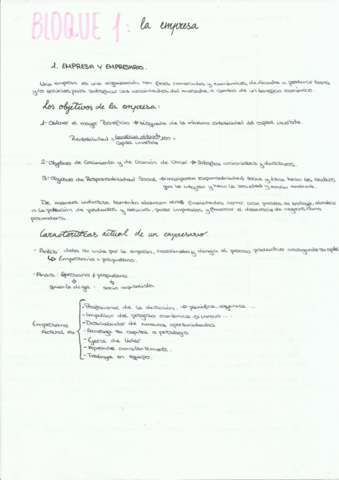 BLOQUE 1: la empresa
1. EMPRESA Y EMPRESARIO.
Una empresa es una organización con fines comerciales y económicos dedicada a producir bienes
y/o servicios para satisfacer las necesidades del mercado a cambio de un beneficio económico.
Los objetivos de la empresa:
1- Obtener el mayor Beneficio → búsqueda de la máxima rentabilidad del capital invertido.
Rentabilidad = beneficio obtenido / capital invertido · 100 =
2- Objetivo de Crecimiento y de Creación de Valor → satisfacer accionistas y directivos.
3- Objetivo de Responsabilidad Social → incorporan responsabilidad social y ética hacia los
que la integran y hacia la sociedad y medio ambiente.
De manera indirecta también alcanzan otras finalidades como crear puestos de trabajo, abastecer
a la población de productos y servicios, pagar impuestos y favorecer el desarrollo de negocios como
proveedores.
Características actual de un empresario
- Antes: daba su vida por la empresa, coordinaba y dirigía el proceso productivo arriesgando su capital
↳ Empresario = propietario.
- Ahora: Empresario ≠ propietario
quien la dirige socio capitalista
Empresario
Actual es
- Profesional de la dirección → planifica, organiza...
- Impulsor del progreso económico → innova...
- Descubridor de nuevas oportunidades
- Arriesga su capital o prestigio
- Ejerce de líder
- Aprende constantemente.
- Trabaja en equipo.